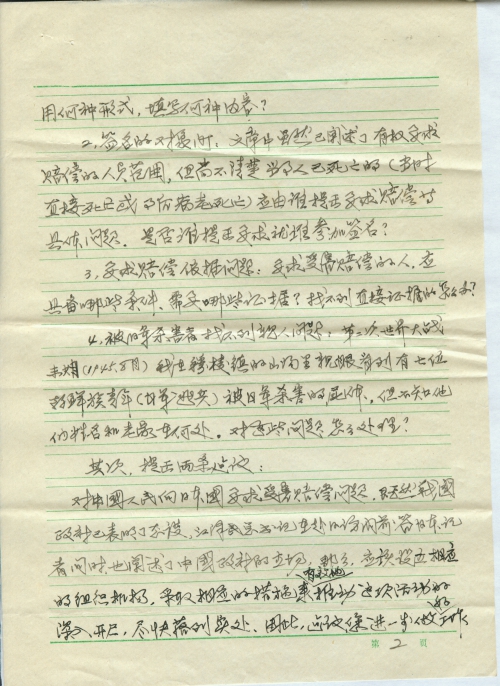 用何种形式，填写何种内容？
2、签名的对象问：文章中虽然已阐述了有权要求
赔偿的人员范围，但尚不清楚当事人已死亡的（当时
直接死亡或的后病起死亡）应由谁提出要求赔偿等
具体问题。是否谁提出要求就谁参加签名？
3、要求赔偿依据问题：要求受害赔偿的人，应
具备哪些条件、需要哪些证据？找不到直接证据的怎么办？
4、被日军杀害者找不到亲人问题：第二次世界大战
末期（1945.8月）我在穆棱镇的山沟里亲眼看到有七位
朝鲜族青年被日军杀害的尸体，但不知他
们姓名和老家在何处。对这些问题怎么处理？
其次，提出两条建议：
对中国人民向日本国要求受害赔偿问题，既然我国
政府已表明了态度，江泽民总书记在赴日访问前答日本记
者问时也阐述了中国政府的立场，那么，应该设立相应
的组织机构，采取相应的措施有效地来推动这次活动的
深入开展，尽快落到实处。因此，建议您进一步做好工作
第2页